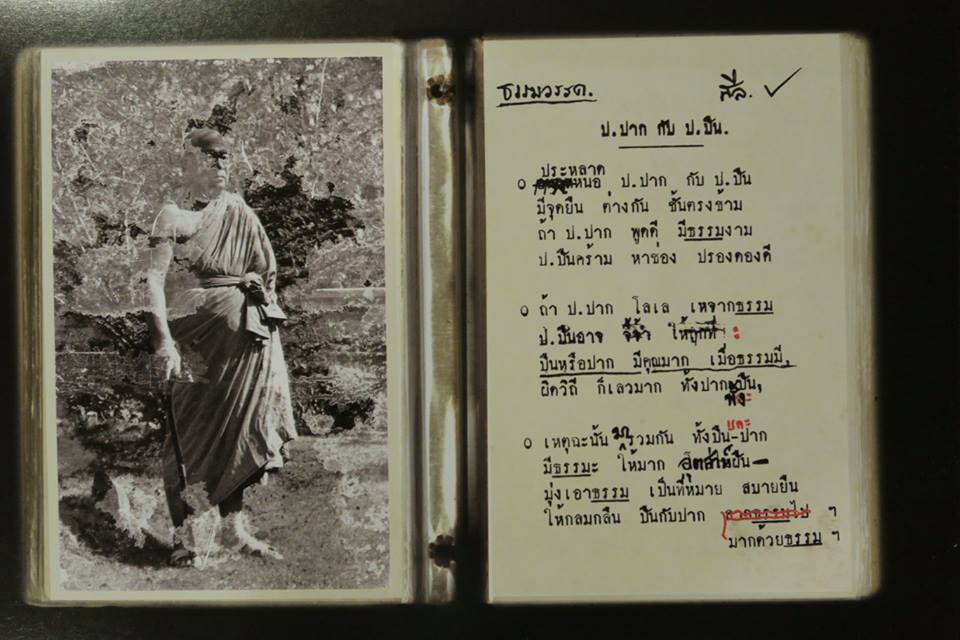 ธรรมวรรค.
ศีล. ✓
ป.ปาก กับ ป.ปืน.
ประหลาด
๐ หนอ ป.ปาก กับ ป.ปืน
มีจุดยืน ต่างกัน ชั้นตรงข้าม
ถ้า ป.ปาก พูดดี มีธรรมงาม
ป.ปืนคร้าม หาช่อง ปรองดองดี
๐ ถ้า ป.ปาก โลเล เหจากธรรม
ป.ปืนอาจ จี้จ้ำ ให้ถูกที่ :
ปืนหรือปาก มีคุณมาก เมื่อธรรมมี,
ผิดวิถี ก็เลวมาก ทั้งปากปืน,
๐ เหตุฉะนั้น มาร่วมกัน ทั้งปืน-ปาก
มีธรรมะ ให้มาก อุตส่าห์ฝืน
มุ่งเอาธรรม เป็นที่หมาย สบายยืน
ให้กลมกลืน ปืนกับปาก ฯ
มากด้วยธรรม ฯ